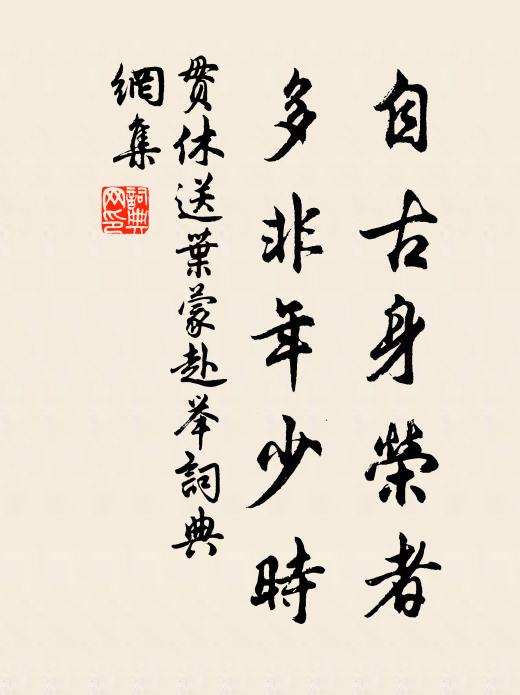 自古身榮者
多非年少時
贯休送葉蒙赴举詞典
網集
詞典網印